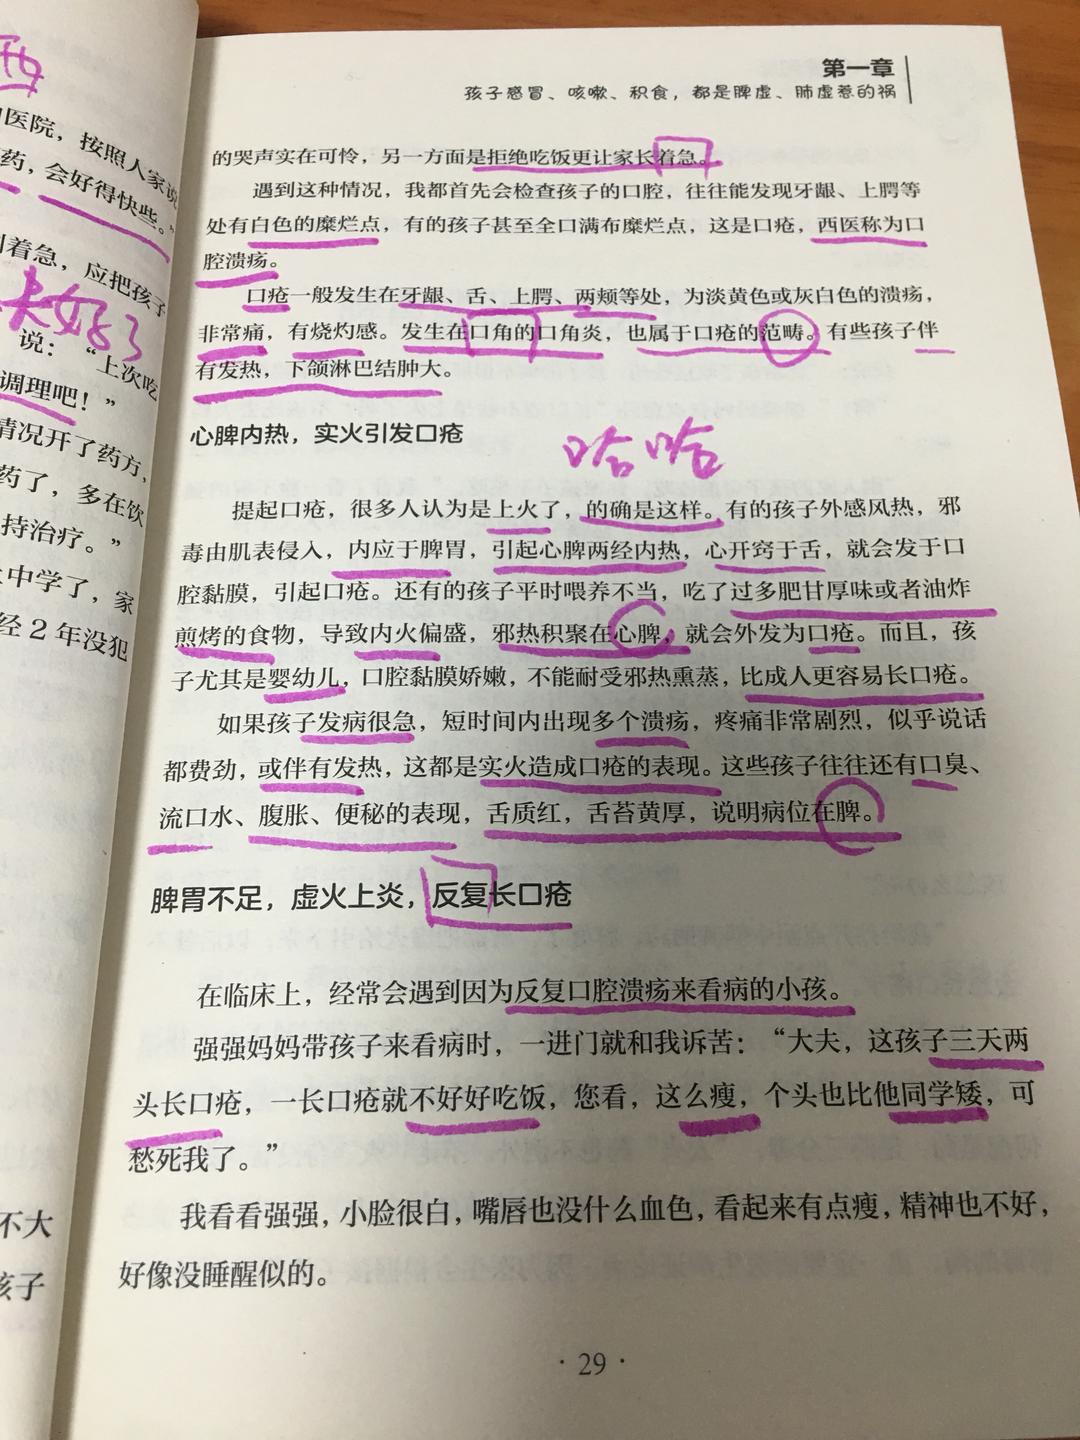 西
医院，按照人家说
药，会好得快些。”
着急，应把孩子
夫好了
说：“上次吃
调理吧！”
情况开了药方，
药了，多在饮
持治疗。”
中学了，家
经2年没犯
不大
孩子
第一章
孩子感冒、咳嗽、积食，都是脾虚、肺虚惹的祸
的哭声实在可怜，另一方面是拒绝吃饭更让家长着急。
遇到这种情况，我都首先会检查孩子的口腔，往往能发现牙龈、上腭等
处有白色的糜烂点，有的孩子甚至全口满布糜烂点，这是口疮，西医称为口
腔溃疡。
口疮一般发生在牙龈、舌、上腭、两颊等处，为淡黄色或灰白色的溃疡，
非常痛，有烧灼感。发生在口角的口角炎，也属于口疮的范畴。有些孩子伴
有发热，下颌淋巴结肿大。
心脾内热，实火引发口疮
哈哈
提起口疮，很多人认为是上火了，的确是这样。有的孩子外感风热，邪
毒由肌表侵入，内应于脾胃，引起心脾两经内热，心开窍于舌，就会发于口
腔黏膜，引起口疮。还有的孩子平时喂养不当，吃了过多肥甘厚味或者油炸
煎烤的食物，导致内火偏盛，邪热积聚在心脾，就会外发为口疮。而且，孩
子尤其是婴幼儿，口腔黏膜娇嫩，不能耐受邪热熏蒸，比成人更容易长口疮。
如果孩子发病很急，短时间内出现多个溃疡，疼痛非常剧烈，似乎说话
都费劲，或伴有发热，这都是实火造成口疮的表现。这些孩子往往还有口臭、
流口水、腹胀、便秘的表现，舌质红，舌苔黄厚，说明病位在脾。
脾胃不足，虚火上炎，反复长口疮
在临床上，经常会遇到因为反复口腔溃疡来看病的小孩。
强强妈妈带孩子来看病时，一进门就和我诉苦：“大夫，这孩子三天两
头长口疮，一长口疮就不好好吃饭，您看，这么瘦，个头也比他同学矮，可
愁死我了。”
我看看强强，小脸很白，嘴唇也没什么血色，看起来有点瘦，精神也不好，
好像没睡醒似的。
·29·